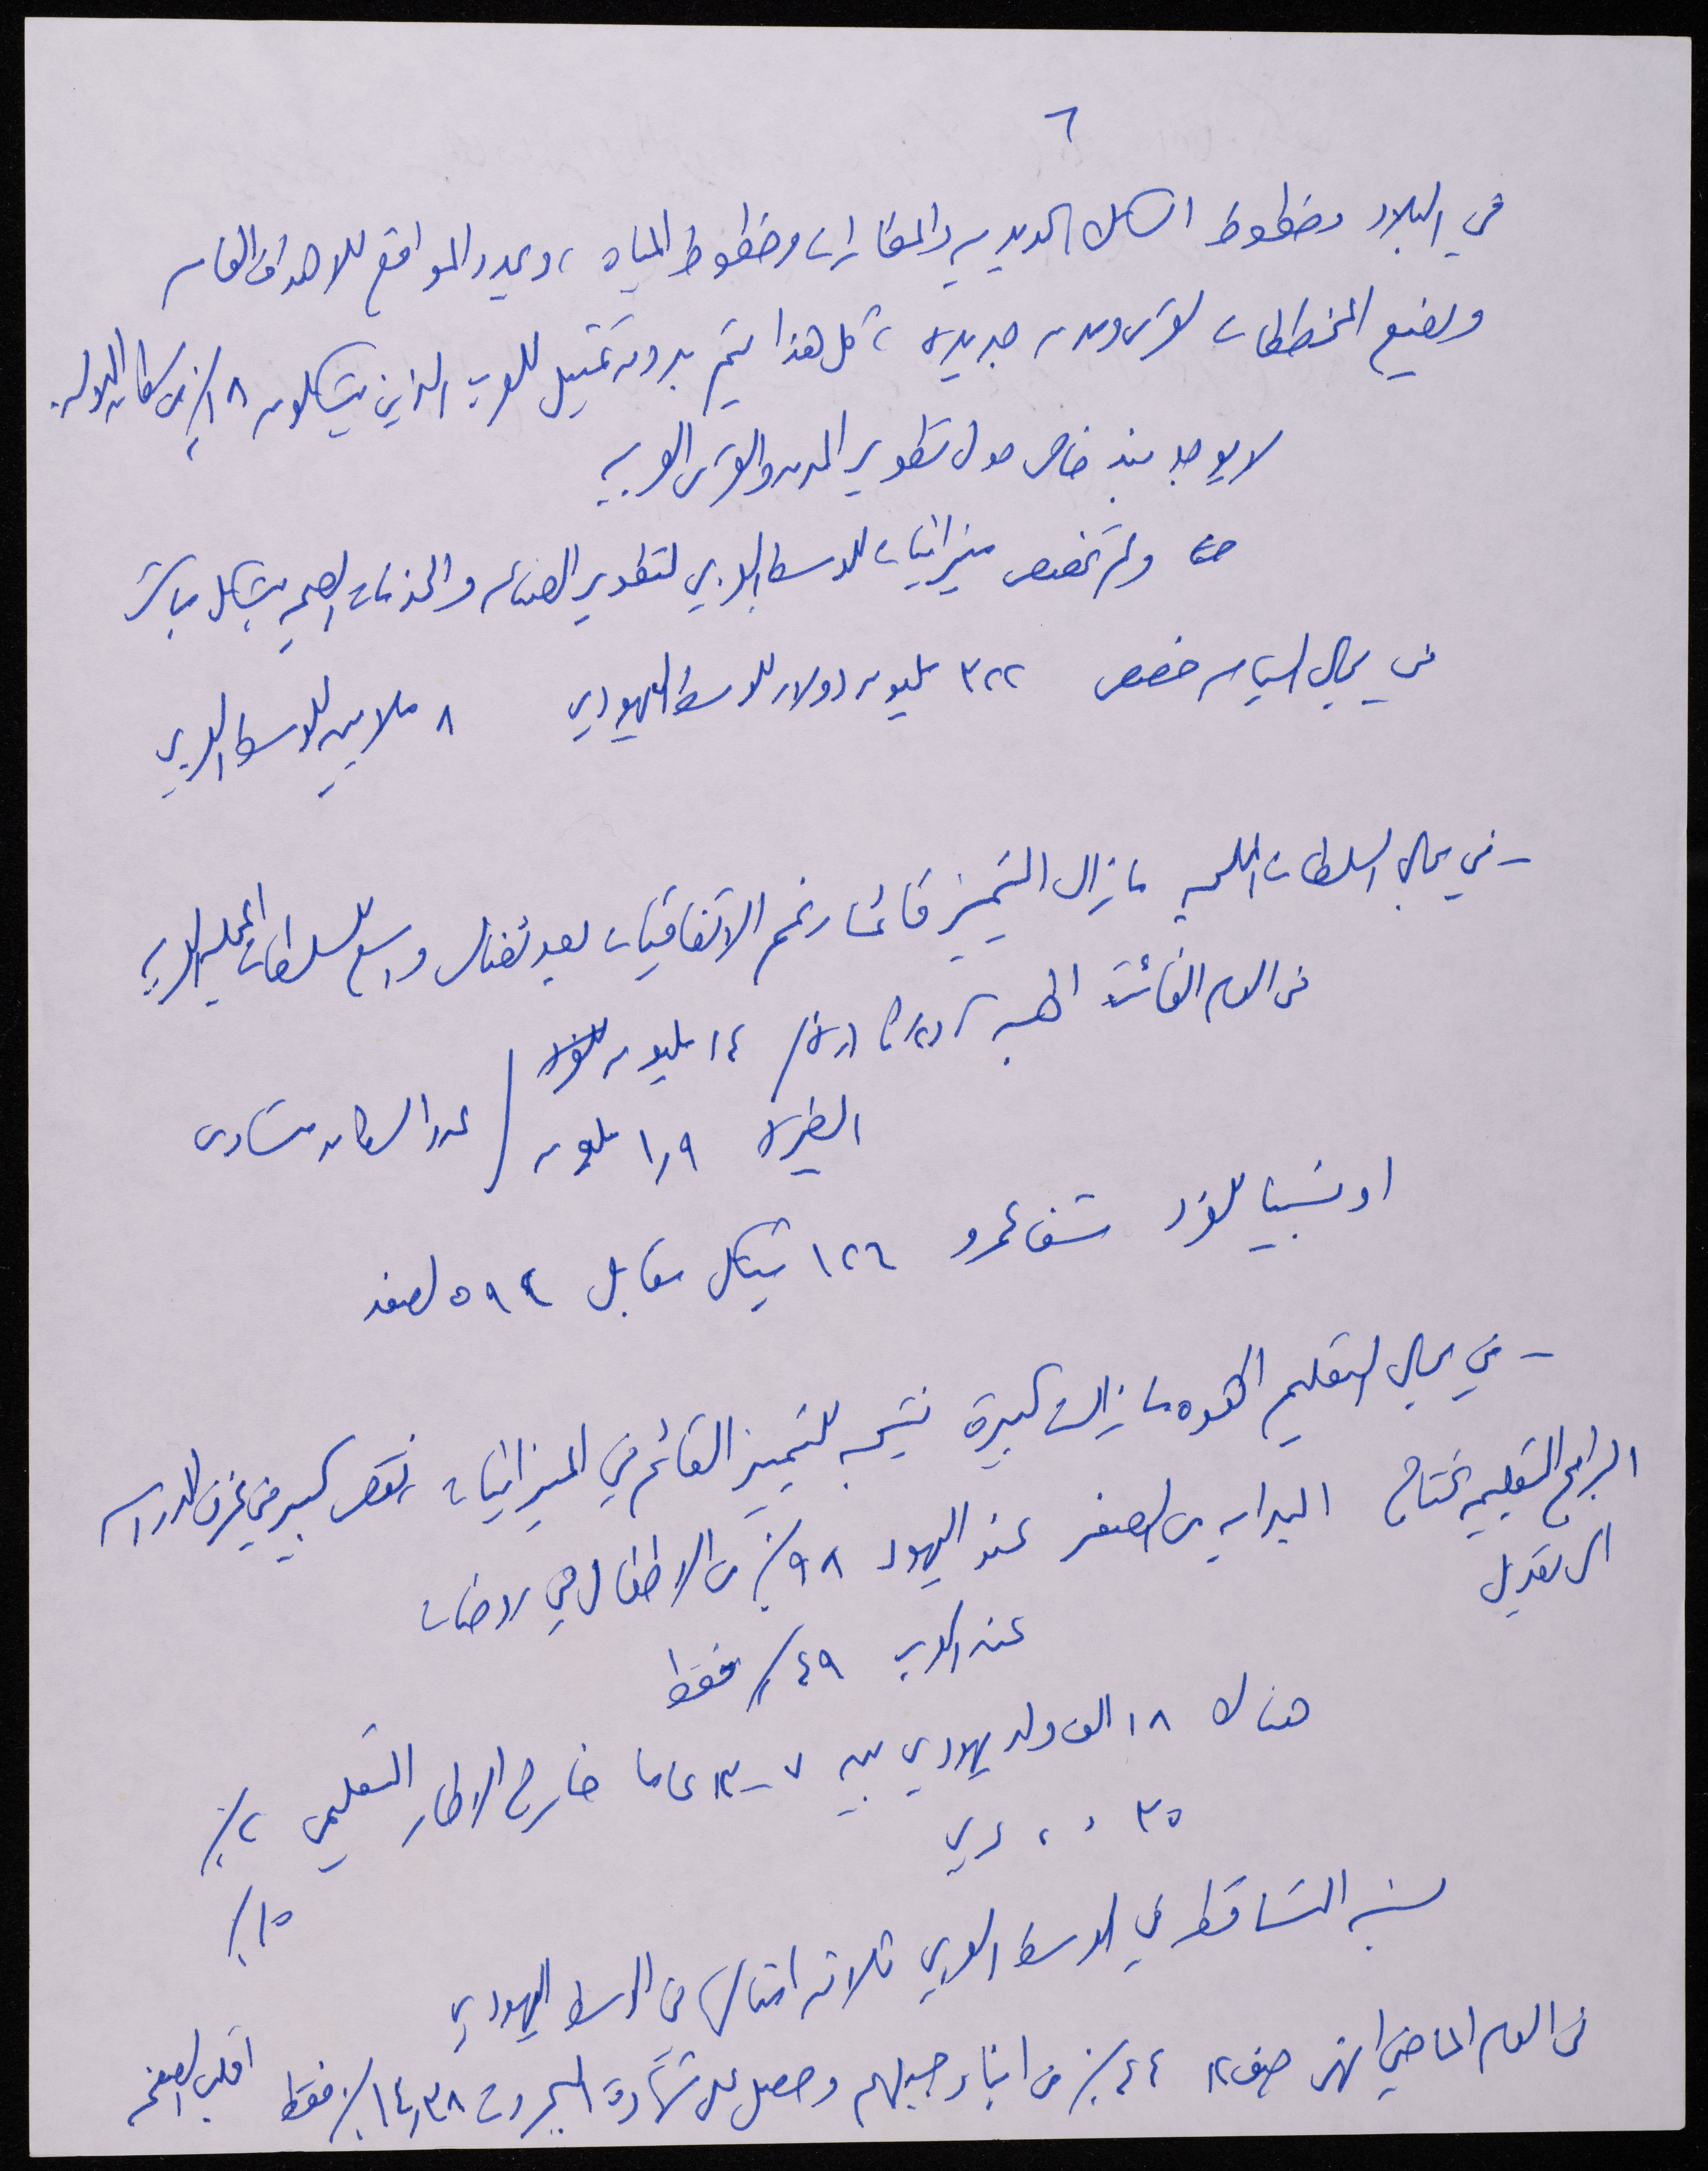 ٦
في البلاد وخطوط السكك الحديديه والمطارات وخطوط المياه، ويحدد المواقع للاهداف العامه
ويضع المخططات لقرى ومدن جديده، كل هذا يتم بدون تمثيل للعرب الذين يشكلون ١٨٪ من سكان الدوله.
لا يوجد بند خاص حول تطوير المدن والقرى العربيه
ولم تخصص ميزانيات للوسط العربي لتطوير الصناعه والخدمات الصحيه بشكل مباشر
في مجال السياحه خصص ٣٢٢ مليون دولار للوسط اليهودي ٨ ملايين للوسط العربي
- في مجال السلطات المحليه ما يزال التمييز قائما رغم الاتفاقيات بعد نضال واسع للسلطات المحليه العربيه
في العام الفائت ١٤ مليون
الطيره ١٫٩ مليون / عدد السكان متساوى
او نسبيا للفرد شفاعمرو ١٢٦ شيكل مقابل ٥٩٤ لصفد
- في مجال التعليم الهوه ما زالت كبيرة نتيجه للتمييز القائم في الميزانيات نقص كبير في غرف الدراسه
البرامج التعليميه تحتاج الى تعديل
البدايه من الصفر عند اليهود ٩٨٪ من الاطفال في روضات
عند العرب ٤٩٪ فقط
هناك ١٨ الف ولد يهودي بين ٧-١٣ عاما خارج الاطار التعليمي ٢٪
٣٥ " " عربي ١٥٪
نسبه التساقط في الوسط العربي ثلاثه امثالها في الوسط اليهودي
في العام الماضي انهى صف ١٢ ٤٤٪ من ابناء جيلهم وحصل على شهادة البجروت ١٤٫٣٨٪ فقط اقلب الصفحه